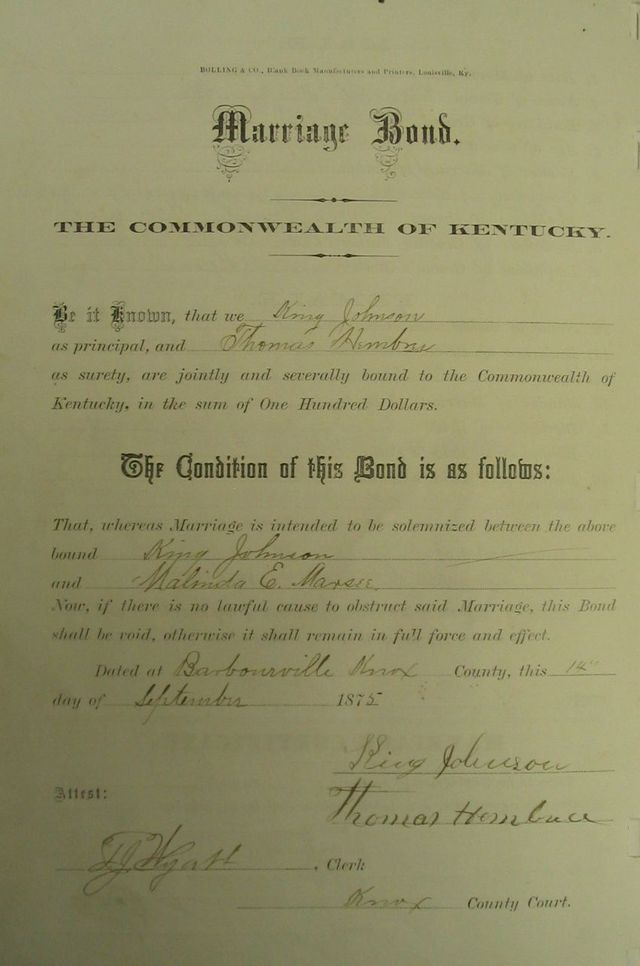 BOLLING & CO., Blank Book Manufacturers and Printers, Louisville, Ky.
Marriage Bond.
THE COMMONWEALTH OF KENTUCKY.
Be it Known, that we King Johnson
as principal, and Thomas Hembree
as surety, are jointly and severally bound to the Commonwealth of
Kentucky, in the sum of One Hundred Dollars.
The Condition of this Bond is as follows:
That, whereas Marriage is intended to be solemnized between the above
bound King Johnson
and Malinda E. Marsee.
Now, if there is no lawful cause to obstruct said Marriage, this Bond
shall be void, otherwise it shall remain in full force and effect.
Dated at Barbourville Knox County, this 14"
day of September 1875
King Johnson
Attest:
Thomas
T J Wyatt, Clerk
Knox County Court.